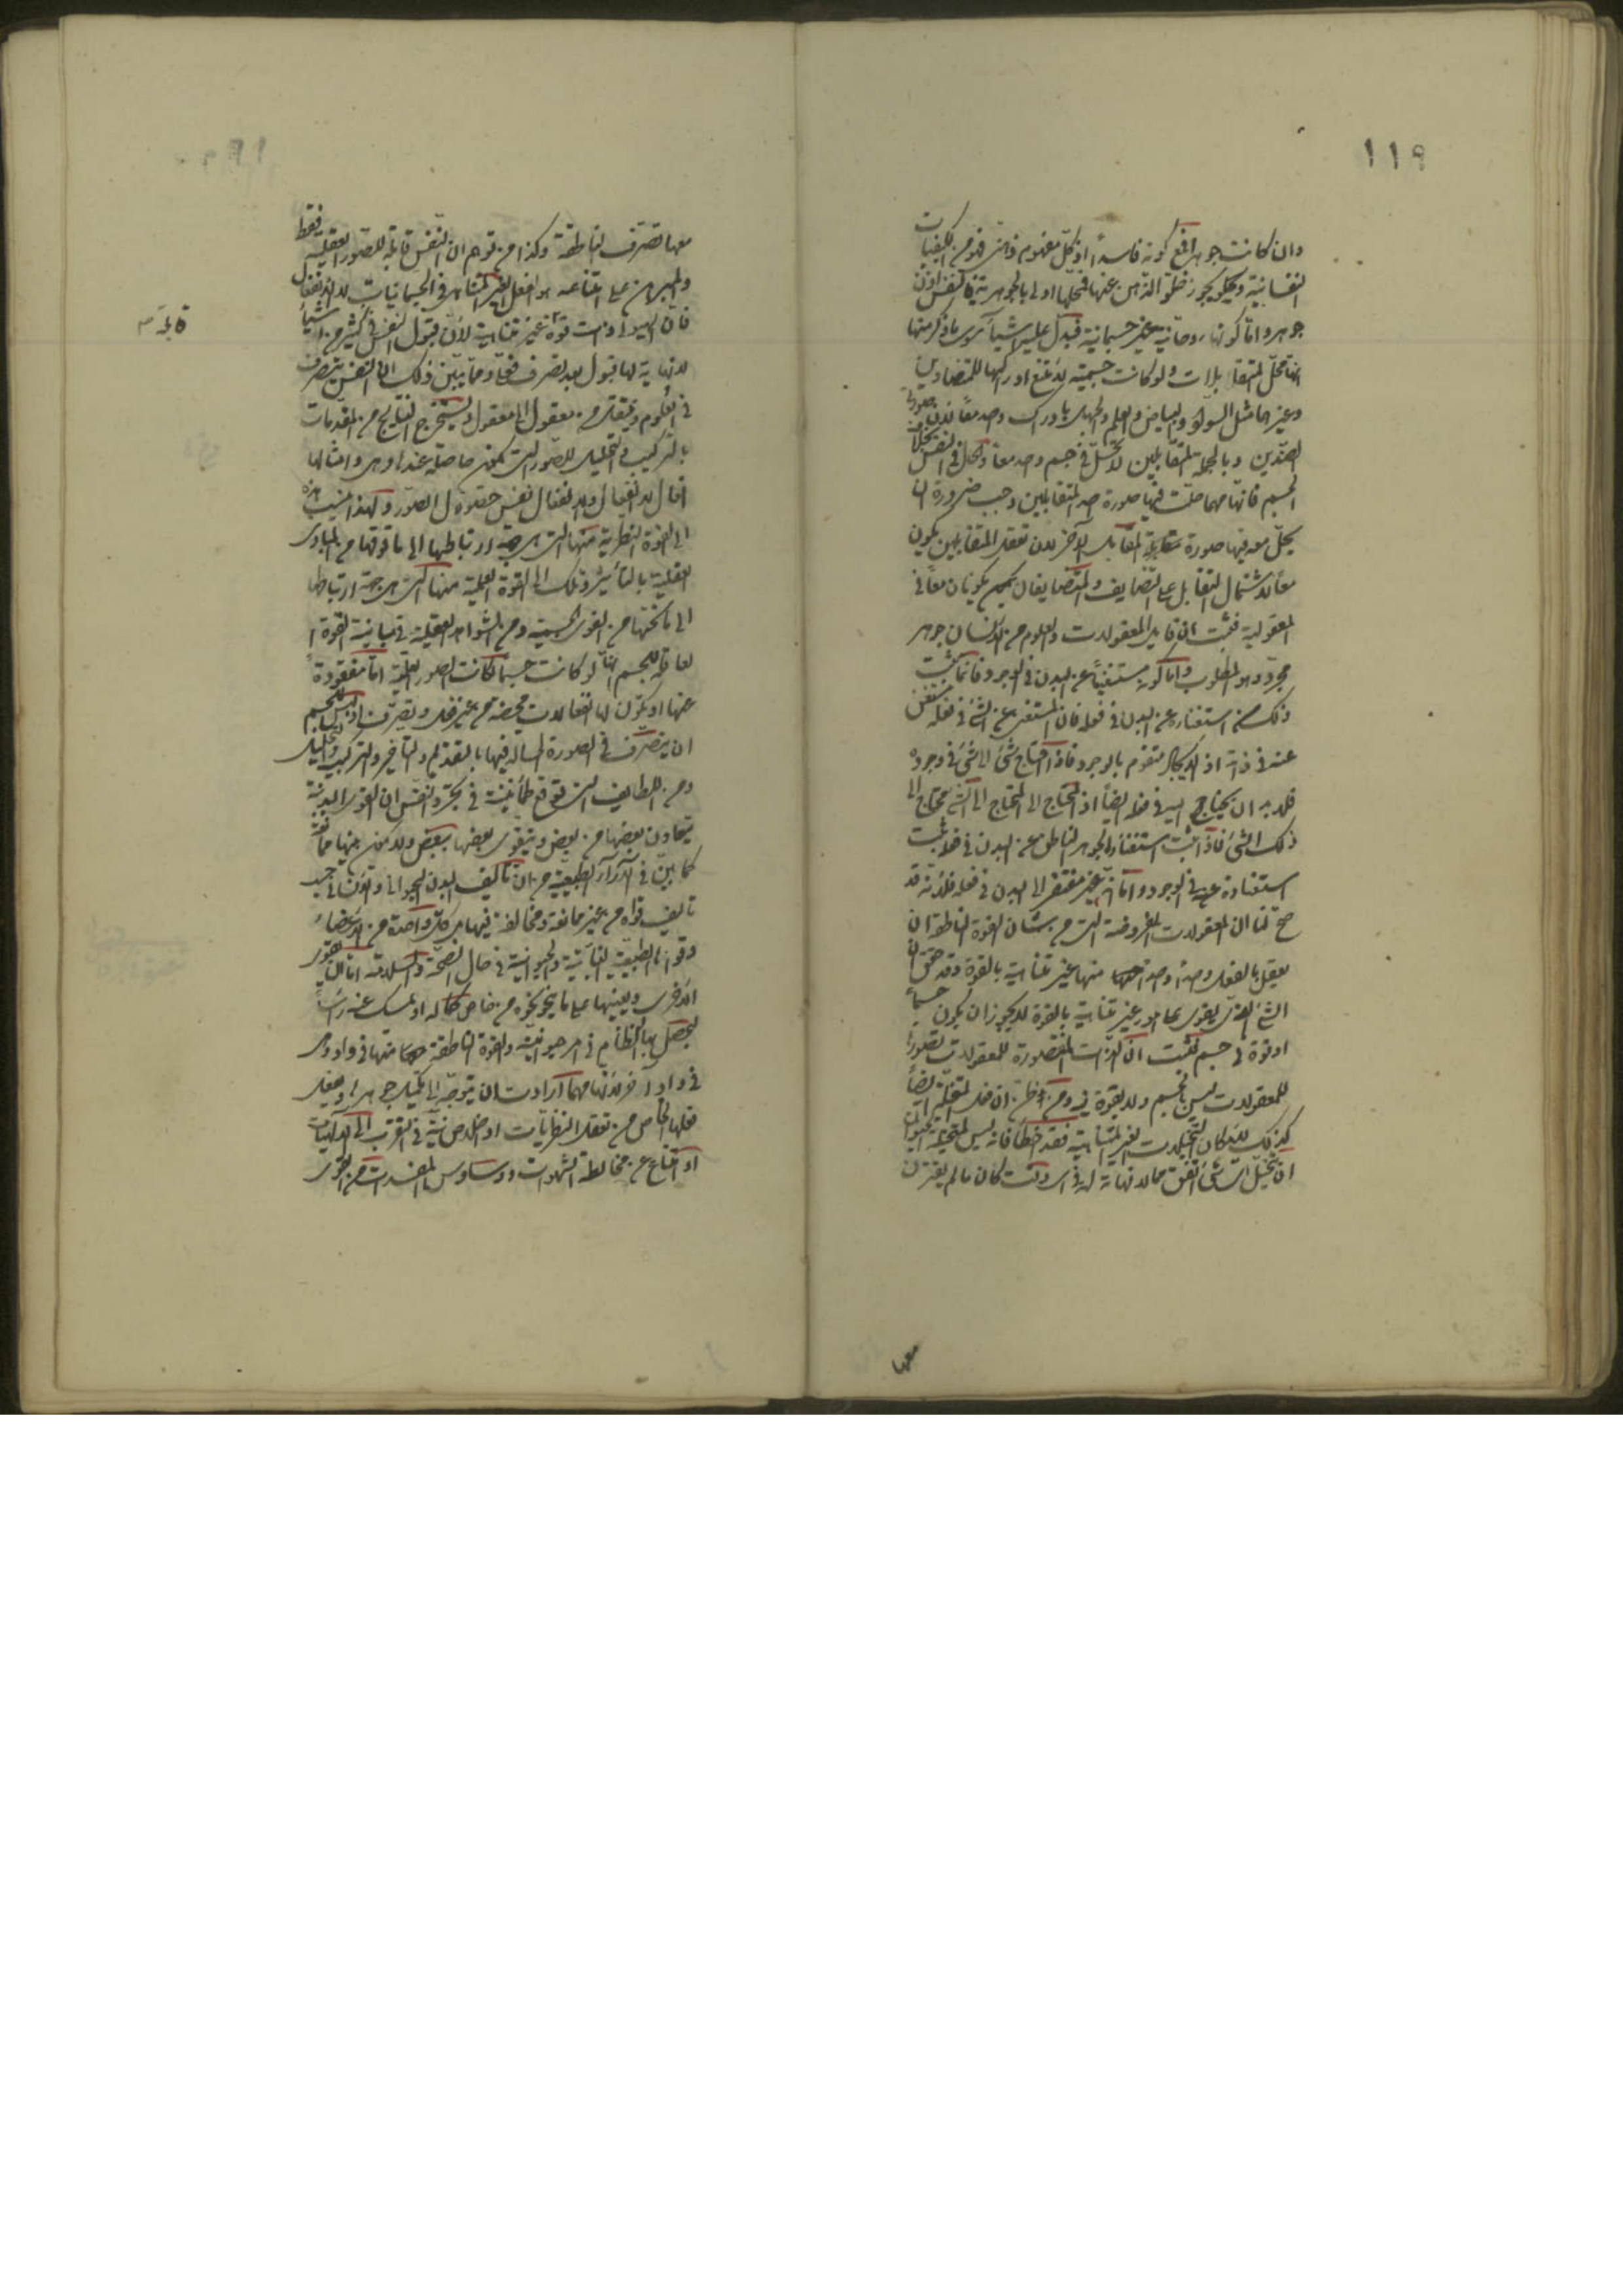 ١١٩
وان كانت جوهرا فمع كونه فاسدا اذ كل مفهوم ذهنى فهو من الكيفيات
النفسانية ويجوز خلو الذهن عنها فمحلها اولى بالجوهرية فالنفس اذن
جوهر واما كونها روحانية غير جسمانية فيدل عليه اشياء سوى ما ذكر منها
انها محل المتقابلات ولو كانت جسمية لامتنع ادراكها للمتضادين
وغيرهما مثل السواد والبياض والعلم والجهل بادراك واحد معا لان صورة
الضدين وبالجملة المتقابلين لا تحل فى جسم واحد معا والحال فى النفس بخلاف
الجسم فانها مهما حلت فيها صورة احد المتقابلين وجب ضرورة ان
يحل معه فيها صورة مقابله المقابل الآخر لان تعقل المتقابلين يكون
معا لاشتمال التقابل على التضايف والمتضايفان يكونان معا فى
المعقولية فثبت ان قابل المعقولات والعلوم من الانسان جوهر
مجرد وهو المطلوب واما كونه مستغنيا عن البدن فى الوجود فانما يثبت
ذلك من استغنائه عن البدن فى فعله فان المستغنى عن الشئ فى فعله مستغن
عنه فى ذاته اذ الايجاد متقوم بالوجود فاذا احتاج شئ الى شئ فى وجوده
فلابد ان يحتاج اليه فى فعله ايضا اذ المحتاج الى المحتاج الى الشئ محتاج الى
ذلك الشئ فاذا ثبت استغناء الجوهر الناطق عن البدن فى فعله ثبت
استغناؤه عنه فى الوجود واما انه غير مفتقر الى البدن فى فعله فلانه قد
صح لنا ان المعقولات المفروضة التى من شأن القوة الناطقة ان
يعقل بالفعل واحدا واحدا منها غير متناهية بالقوة وقد حقق ان
الشئ الذى يقوى على امور غير متناهية بالقوة لا يجوز ان يكون جسما
او قوة فى جسم فثبت ان الذات المتصورة للمعقولات
للمعقولات ليس بجسم ولا بقوة فيه ومن ظن ان فعل المتخيلة ايضا
كذلك لامكان التخيلات الغير المتناهية فقد اخطا فانه ليس للمتخيلة الحيوان
ان تتخيل اى شئ اتفق مما لا نهاية له فى اى وقت كان ما لم يقترن
معها
معها تصرف الناطقة وكذا من توهم ان النفس قابلة للصور العقلية فقط
والمبرهن على امتناعه هو افعل الغير المتناهى فى الجسمانيات لا الانفعال
فان الهيولى ذات قوة غير متناهية لان قبول النفس فى كثير من اشياء
لا نهاية لها قبول بعد تصرف فعلى ومما يبين ذلك ان النفس يتصرف
فى العلوم وينتقل من معقول الى معقول ويستخرج النتايج من المقدمات
بالتركيب والتحليل للصور التى تكون حاصلة عندها وهى وامثالها
افعال لا انفعال ولا انفعال نفس حصول الصور ولهذا ينسب هذه
الى القوة النظرية منها التى هى جهة ارتباطها الى ما فوقها من المبادى
العقلية بالتأثير وتلك الى القوة العملية منها التى هى جهة ارتباطها
الى ما تحتها من القوى الجسمية ومن الشواهد العقلية فى مباينة القوة
العاقلة للجسم انها لو كانت جسما لكانت الصور العقلية اما مفقودة
عنها او يكون لها انفعالات محضة من غير فعل وتصرف اذ ليس للجسم
ان يتصرف فى الصورة الحالة فيها بالتقديم والتأخير والتركيب والتحليل
ومن اللطايف التى توقع طمأنينة فى تجرد النفس ان القوى البدنية
يتعاون بعضها من بعض ويتقوى بعضها ببعض ولا يكون بينها ممانعة
كما بين فى الآراء الطبيعية من ان تأليف البدن الحيوانى والانسانى يجب
تأليف قواه من غير ممانعة ومخالفة فيها بل كل واحدة من الاعضاء
وقواها الطبيعية النباتية والحيوانية فى حال الصحة والسلامة اما ان يقوى
الاخرى ويعينها على ما ينحو نحوه من خاص كماله او يمسك عنه رأسا
ليحصل بها النظام فى امر حيوانيته والقوة الناطقة منها فى واد وهى
فى واد آخر لانها مهما ارادت ان يتوجه الى تكميل جوهرها ويفعل
فعلها الخاص من تعقل النظريات او خلاص نية فى التقرب الى الالهيات
او امتناع عن مخالطة الشهوات ووساوس المفسدات من القوى
قابلة م